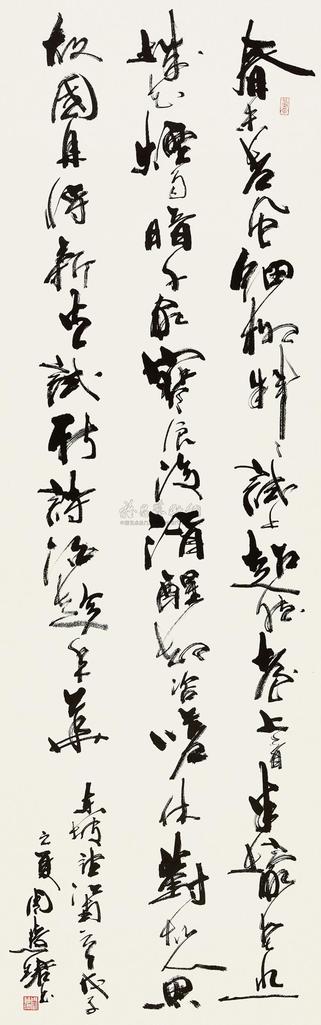 春未老風細柳斜々試上超然臺上看半壕春水一
城花煙雨暗千家寒食後酒醒却咨嗟休對故人思
故國且將新火試新茶詩酒趁年華
東坡望江南一首戊子
之夏周慧珺书